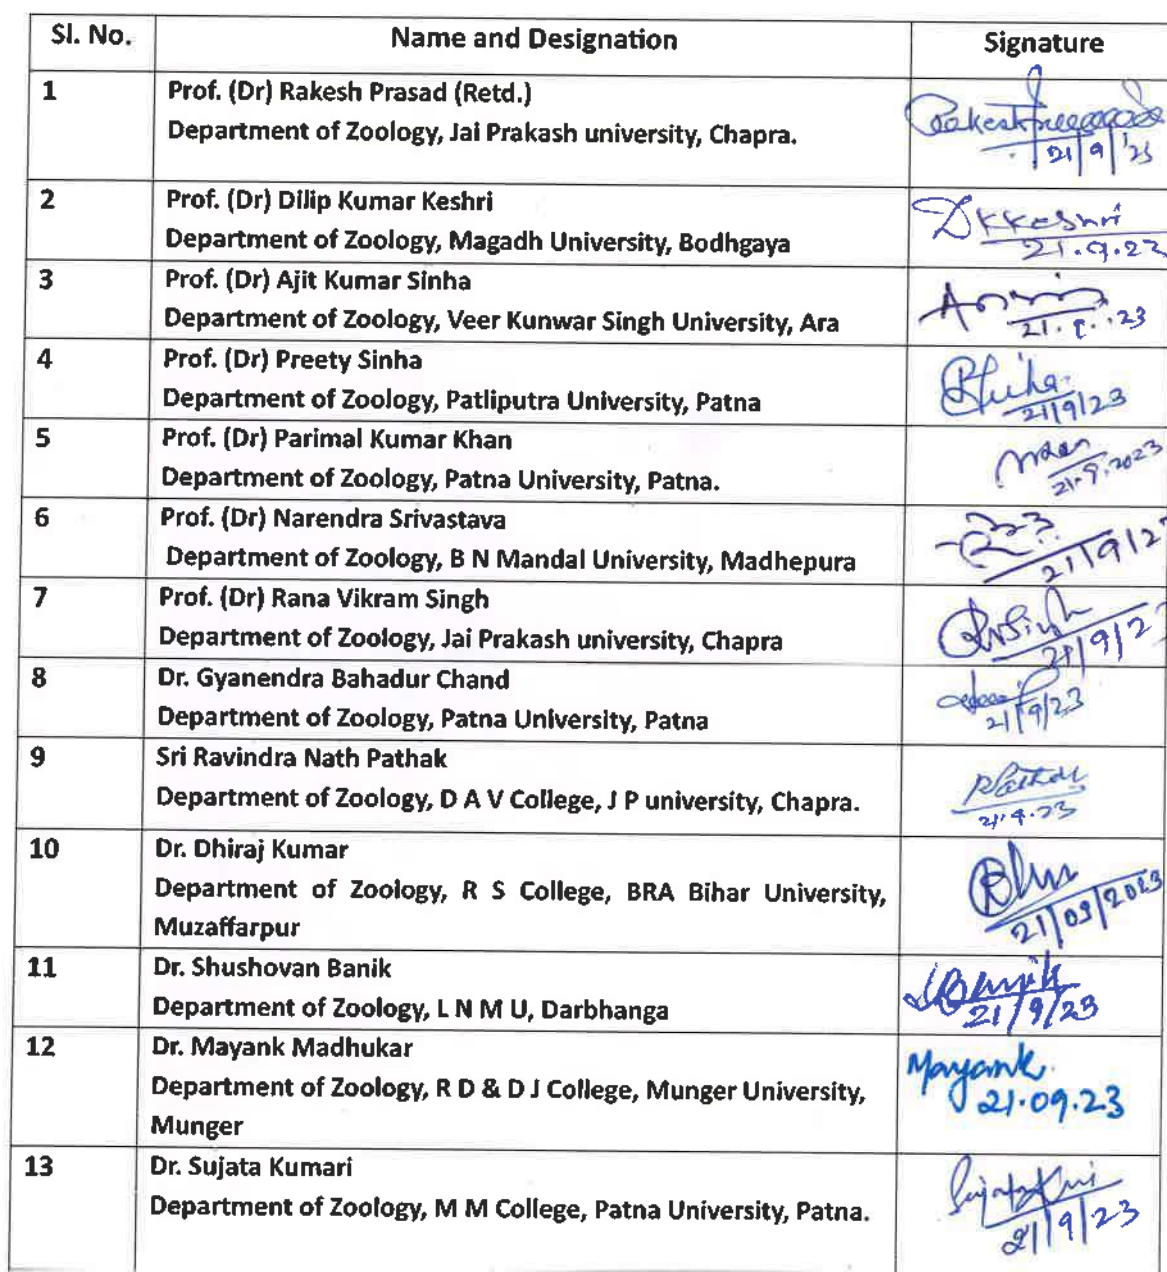 Sl. No. Name and Designation Signature
1 Prof. (Dr) Rakesh Prasad (Retd.)
Department of Zoology, Jai Prakash university, Chapra.
21/9/23
2 Prof. (Dr) Dilip Kumar Keshri DKKeshri
Department of Zoology, Magadh University, Bodhgaya 21.9.23
3 Prof. (Dr) Ajit Kumar Sinha
Department of Zoology, Veer Kunwar Singh University, Ara
4 Prof. (Dr) Preety Sinha
Department of Zoology, Patliputra University, Patna 21/9/23
5 Prof. (Dr) Parimal Kumar Khan
Department of Zoology, Patna University, Patna. 21.9.2023
6 Prof. (Dr) Narendra Srivastava
Department of Zoology, B N Mandal University, Madhepura 21/9/23
7 Prof. (Dr) Rana Vikram Singh
Department of Zoology, Jai Prakash university, Chapra 21/9/23
8 Dr. Gyanendra Bahadur Chand
Department of Zoology, Patna University, Patna 21/9/23
9 Sri Ravindra Nath Pathak
Department of Zoology, D A V College, J P university, Chapra. 21.9.23
10 Dr. Dhiraj Kumar
Department of Zoology, R S College, BRA Bihar University,
Muzaffarpur 21/09/2023
11 Dr. Shushovan Banik SBanik
Department of Zoology, L N M U, Darbhanga 21/9/23
12 Dr. Mayank Madhukar Mayank
Department of Zoology, R D & D J College, Munger University, 21.09.23
Munger
13 Dr. Sujata Kumari
Department of Zoology, M M College, Patna University, Patna. 21/9/23